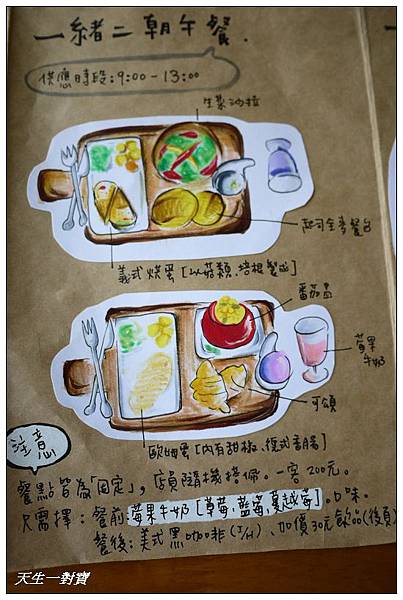 一緒二朝午餐.
供應時段:9:00-13:00
生菜沙拉
起司全麥餐包
義式烘蛋[以菇類、培根製成]
番茄盅
莓果牛奶
可頌
歐姆蛋[內有甜椒、德式香腸]
注意
餐點皆為「固定」,店員隨機搭佩。一客200元。
只需擇:餐前:莓果牛奶[草莓,藍莓,蔓越莓]。口味。
餐後:美式黑咖啡(I/H)、加價30元飲品(後頁)
天生一對寶